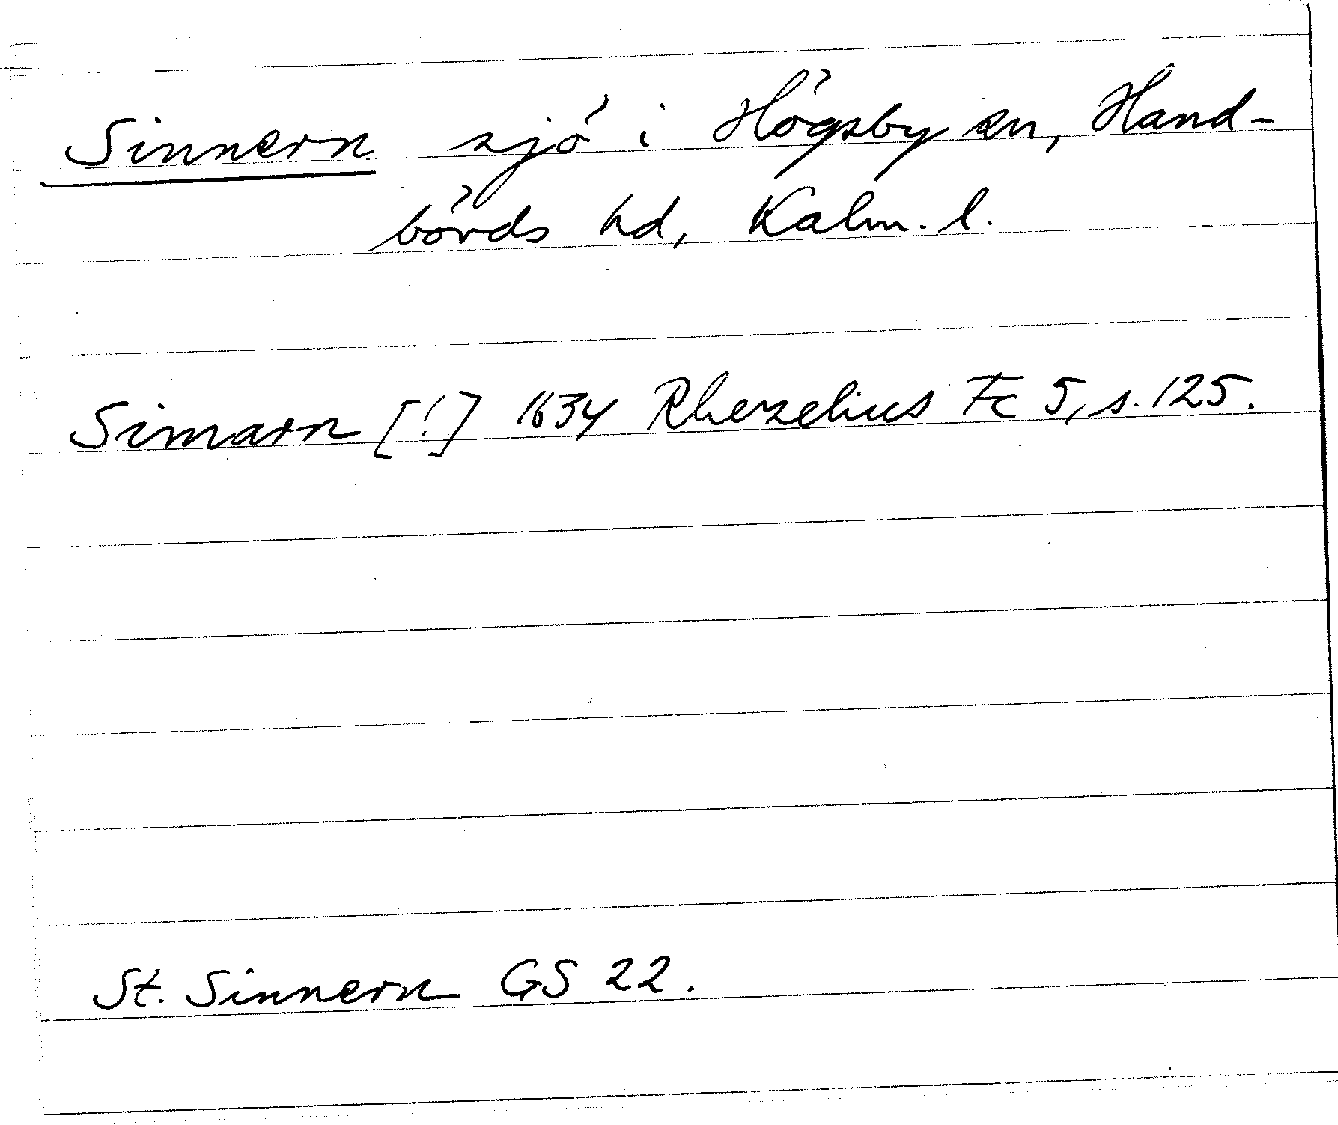 Sinnern sjö i Högsby sn, Hand-
börds hd, Kalm. l.
Simarn [!] 1634 Rhezelius Fc 5, s. 125.
St. Sinnern GS 22.